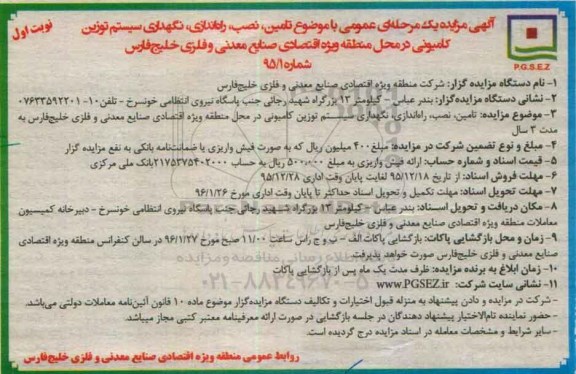 نوبت اول
آگهی مزایده یک مرحله‌ای عمومی با موضوع تامین، نصب، راه‌اندازی، نگهداری سیستم توزین
کامیونی در محل منطقه ویژه اقتصادی صنایع معدنی و فلزی خلیج‌فارس
شماره ۹۵/۱
P.G.S.E.Z
۱- نام دستگاه مزایده گزار: شرکت منطقه ویژه اقتصادی صنایع معدنی و فلزی خلیج‌فارس
۲- نشانی دستگاه مزایده‌گزار: بندر عباس - کیلومتر ۱۳ بزرگراه شهید رجائی جنب پاسگاه نیروی انتظامی خونسرخ - تلفن ۱۰-۰۷۶۳۳۵۹۲۲۰۱
۳- موضوع مزایده: تامین، نصب، راه‌اندازی، نگهداری سیستم توزین کامیونی در محل منطقه ویژه اقتصادی صنایع معدنی و فلزی خلیج‌فارس به
مدت ۳ سال
۴- مبلغ و نوع تضمین شرکت در مزایده: مبلغ ۴۰۰ میلیون ریال که به صورت فیش واریزی یا ضمانتنامه بانکی به نفع مزایده گزار
۵- قیمت اسناد و شماره حساب: ارائه فیش واریزی به مبلغ ۵۰۰،۰۰۰ ریال به حساب ۲۱۷۵۳۷۵۴۰۲۰۰۰ بانک ملی مرکزی
۶- مهلت فروش اسناد: از تاریخ ۹۵/۱۲/۱۸ لغایت پایان وقت اداری ۹۵/۱۲/۲۸
۷- مهلت تحویل اسناد: مهلت تکمیل و تحویل اسناد حداکثر تا پایان وقت اداری مورخ ۹۶/۱/۲۶
۸- مکان دریافت و تحویل اسناد: بندر عباس - کیلومتر ۱۳ بزرگراه شهید رجائی جنب پاسگاه نیروی انتظامی خونسرخ - دبیرخانه کمیسیون
معاملات منطقه ویژه اقتصادی صنایع معدنی و فلزی خلیج‌فارس
۹- زمان و محل بازگشایی پاکات: بازگشایی پاکات الف - ب و ج راس ساعت ۱۱/۰۰ صبح مورخ ۹۶/۱/۲۷ در سالن کنفرانس منطقه ویژه اقتصادی
صنایع معدنی و فلزی خلیج‌فارس صورت خواهد پذیرفت.
۱۰- زمان ابلاغ به برنده مزایده: ظرف مدت یک ماه پس از بازگشایی پاکات
۱۱- نشانی سایت شرکت: www.PGSEZ.ir
- شرکت در مزایده و دادن پیشنهاد به منزله قبول اختیارات و تکالیف دستگاه مزایده‌گزار موضوع ماده ۱۰ قانون آئین‌نامه معاملات دولتی می‌باشد.
- حضور نماینده تام‌الاختیار پیشنهاد دهندگان در جلسه بازگشایی در صورت ارائه معرفینامه معتبر کتبی مجاز میباشد.
- سایر شرایط و مشخصات معامله در اسناد مزایده درج گردیده است.
روابط عمومی منطقه ویژه اقتصادی صنایع معدنی و فلزی خلیج‌فارس